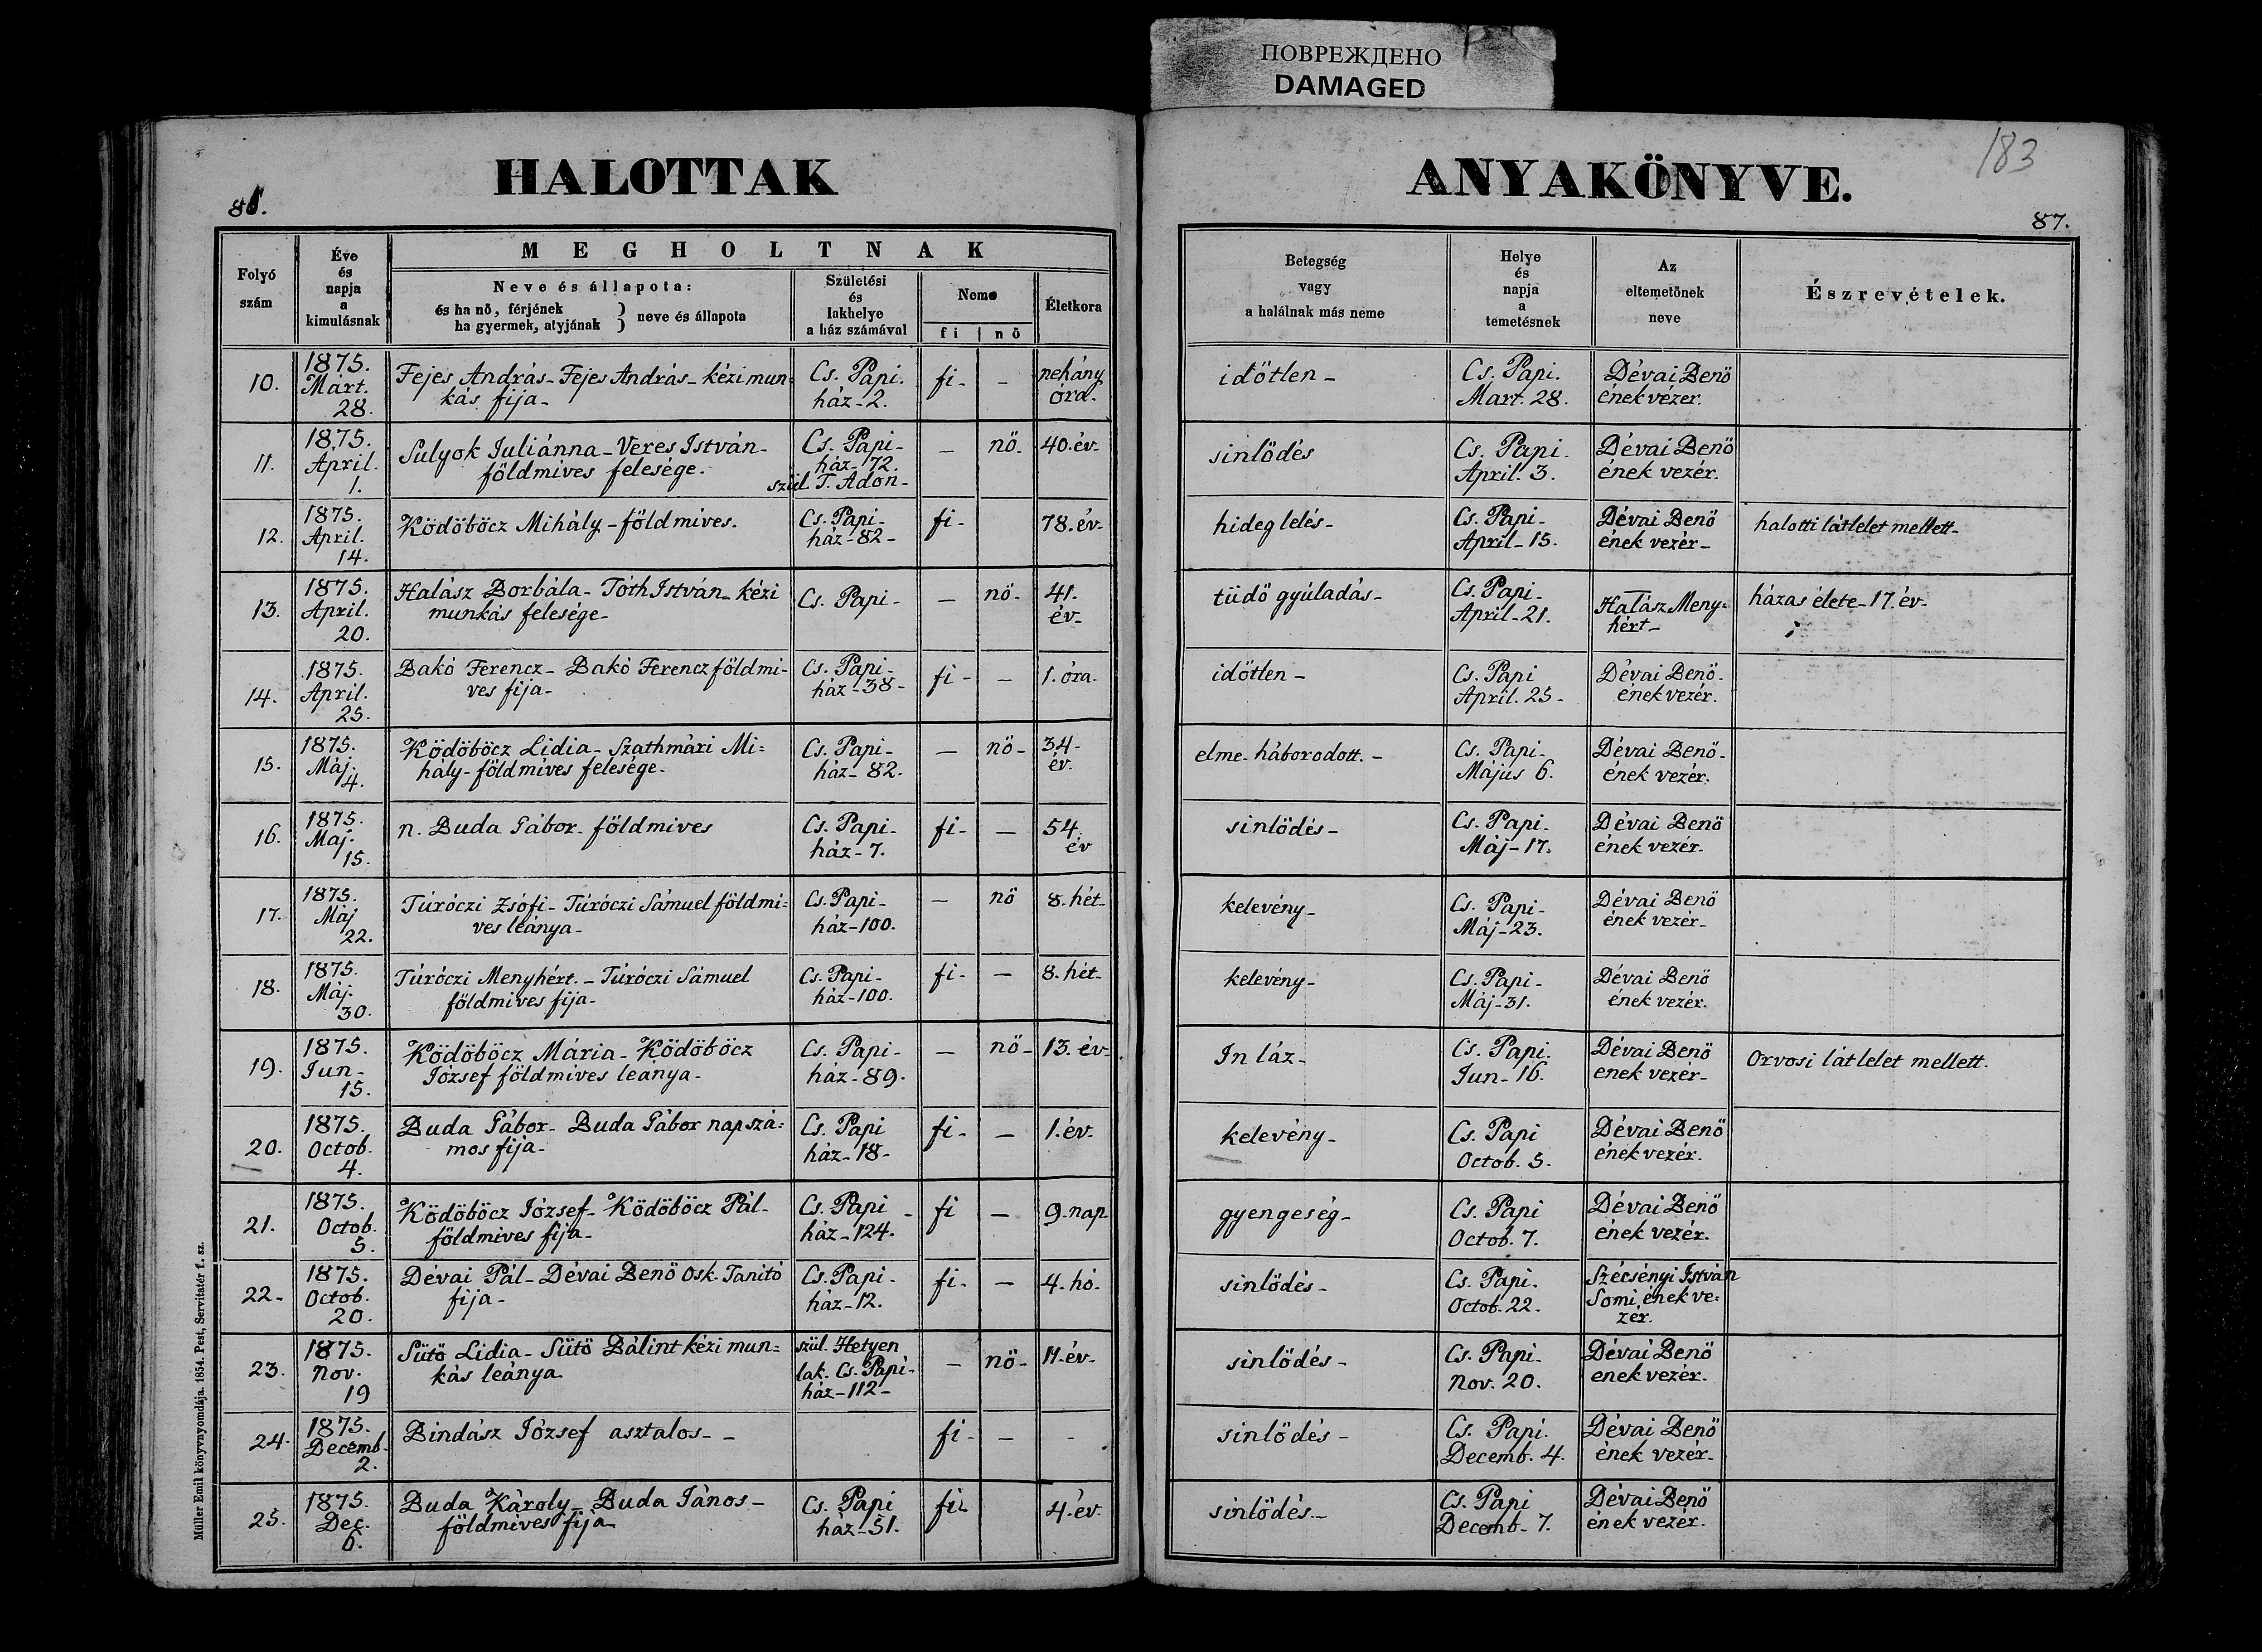 ПОВРЕЖДЕНО
DAMAGED
183
HALOTTAK
ANYAKÖNYVE.
87.
Folyó
szám
Éve
és
napja
a
kimulásnak
MEGHOLTNAK
Neve és állapota:
és ha nő, férjének
ha gyermek, atyjának } neve és állapota
Születési
és
lakhelye
a ház számával
Neme
fi | nő
Életkora
Betegség
vagy
a halálnak más neme
Helye
és
napja
a
temetésnek
Az
eltemetőnek
neve
Észrevételek.
10.
1875.
Márt.
28.
Fejes András - Fejes András - kézi mun=
kás fija -
Cs. Papi.
ház - 2.
fi - -
nehány
óra.
időtlen -
Cs. Papi.
Mart. 28.
Dévai Benő
ének vezér.
11.
1875.
April.
1.
Sulyok Juliánna - Veres István -
földmives felesége -
Cs. Papi -
ház - 72.
szül. T. Adon -
- nő -
40. év -
sinlődés
Cs. Papi.
April. 3.
Dévai Benő
ének vezér.
12.
1875.
April.
14.
Ködöböcz Mihály - földmives.
Cs. Papi -
ház - 82 -
fi -
78. év -
hideg lelés -
Cs. Papi -
April - 15.
Dévai Benő
ének vezér -
halotti látlelet mellett -
13.
1875.
April.
20.
Halász Borbála - Tóth István - kézi
munkás felesége -
Cs. Papi -
- nő -
41.
év -
tüdő gyúladás -
Cs. Papi -
April - 21.
Halász Meny=
hért -
házas élete - 17. év -
14.
1875.
April.
25.
Bakó Ferencz - Bakó Ferencz földmi-
ves fija -
Cs. Papi -
ház - 38 -
fi - -
1. óra.
időtlen -
Cs. Papi
April. 25 -
Dévai Benő -
ének vezér.
15.
1875.
Máj.
4.
Ködöböcz Lidia - Szathmári Mi=
hály - földmíves felesége -
Cs. Papi -
ház - 82.
- nő -
34 -
év.
elme - háborodott. -
Cs. Papi -
Május 6.
Dévai Benő -
ének vezér.
16.
1875.
Maj.
15.
n. Buda Gábor - földmives
Cs. Papi -
ház - 7.
fi - -
54.
év
sinlődés -
Cs. Papi -
Máj - 17.
Dévai Benő
ének vezér.
17.
1875.
Máj
22.
Túróczi Zsófi - Túróczi Sámuel földmi=
ves leánya -
Cs. Papi -
ház - 100.
- nő
8 - hét -
kelevény -
Cs. Papi -
Máj - 23.
Dévai Benő
ének vezér -
18.
1875.
Máj.
30.
Túróczi Menyhért. - Túróczi Sámuel
földmives fija -
Cs. Papi -
ház - 100.
fi - -
8. hét -
kelevény -
Cs. Papi -
Máj - 31.
Dévai Benő
ének vezér.
19.
1875.
Jun -
15.
Ködöböcz Mária - Ködöböcz
József földmíves leánya -
Cs. Papi -
ház - 89.
- nő -
13. év -
In láz -
Cs. Papi.
Jun - 16.
Dévai Benő
enek vezér -
Orvosi látlelet mellett.
20.
1875.
Octob.
4.
Buda Gábor - Buda Gábor napszá=
mos fija -
Cs. Papi
ház - 18 -
fi - -
1. év -
kelevény -
Cs. Papi
Octob. 5.
Dévai Benő
ének vezér.
21.
1875.
Octob.
5.
Ködöböcz József - Ködöböcz Pál -
földmives fija -
Cs. Papi -
ház - 124.
fi -
9. nap
gyengeség -
Cs. Papi
Octob. 7.
Dévai Benő
ének vezér.
22 -
1875.
Octob.
20.
Dévai Pál - Dévai Benő Osk. Tanitó
fija -
Cs. Papi -
ház - 12.
fi - -
4. hó -
sinlődés -
Cs. Papi.
Octob. 22.
Szécsényi István
Somi ének ve=
zér.
23.
1875.
Nov.
19
Sütő Lidia - Sütő Bálint kézi mun=
kás leánya
szül. Hetyen
lak. Cs. Papi -
ház - 112 -
- nő -
11. év -
sinlődés -
Cs. Papi -
Nov. 20.
Dévai Benő
enek vezér.
24.
1875.
Decemb.
2.
Bindász József asztalos - -
fi - - -
sinlődés -
Cs. Papi.
Decemb. 4.
Dévai Benő
ének vezér -
25.
1875.
Dec.
6.
Buda Károly - Buda János -
földmíves fija -
Cs. Papi
ház - 51.
fi -
4. év.
sinlődés. -
Cs. Papi
Decemb - 7.
Dévai Benő
ének vezér.
Müller Emil könyvnyomdája. 1854. Pest, Servitatér 1. sz.